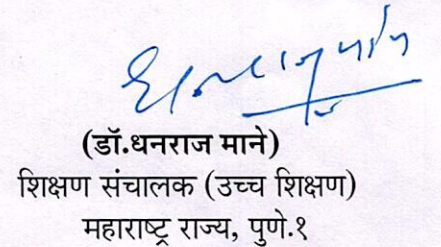 (डॉ.धनराज माने)
शिक्षण संचालक (उच्च शिक्षण)
महाराष्ट्र राज्य, पुणे.१